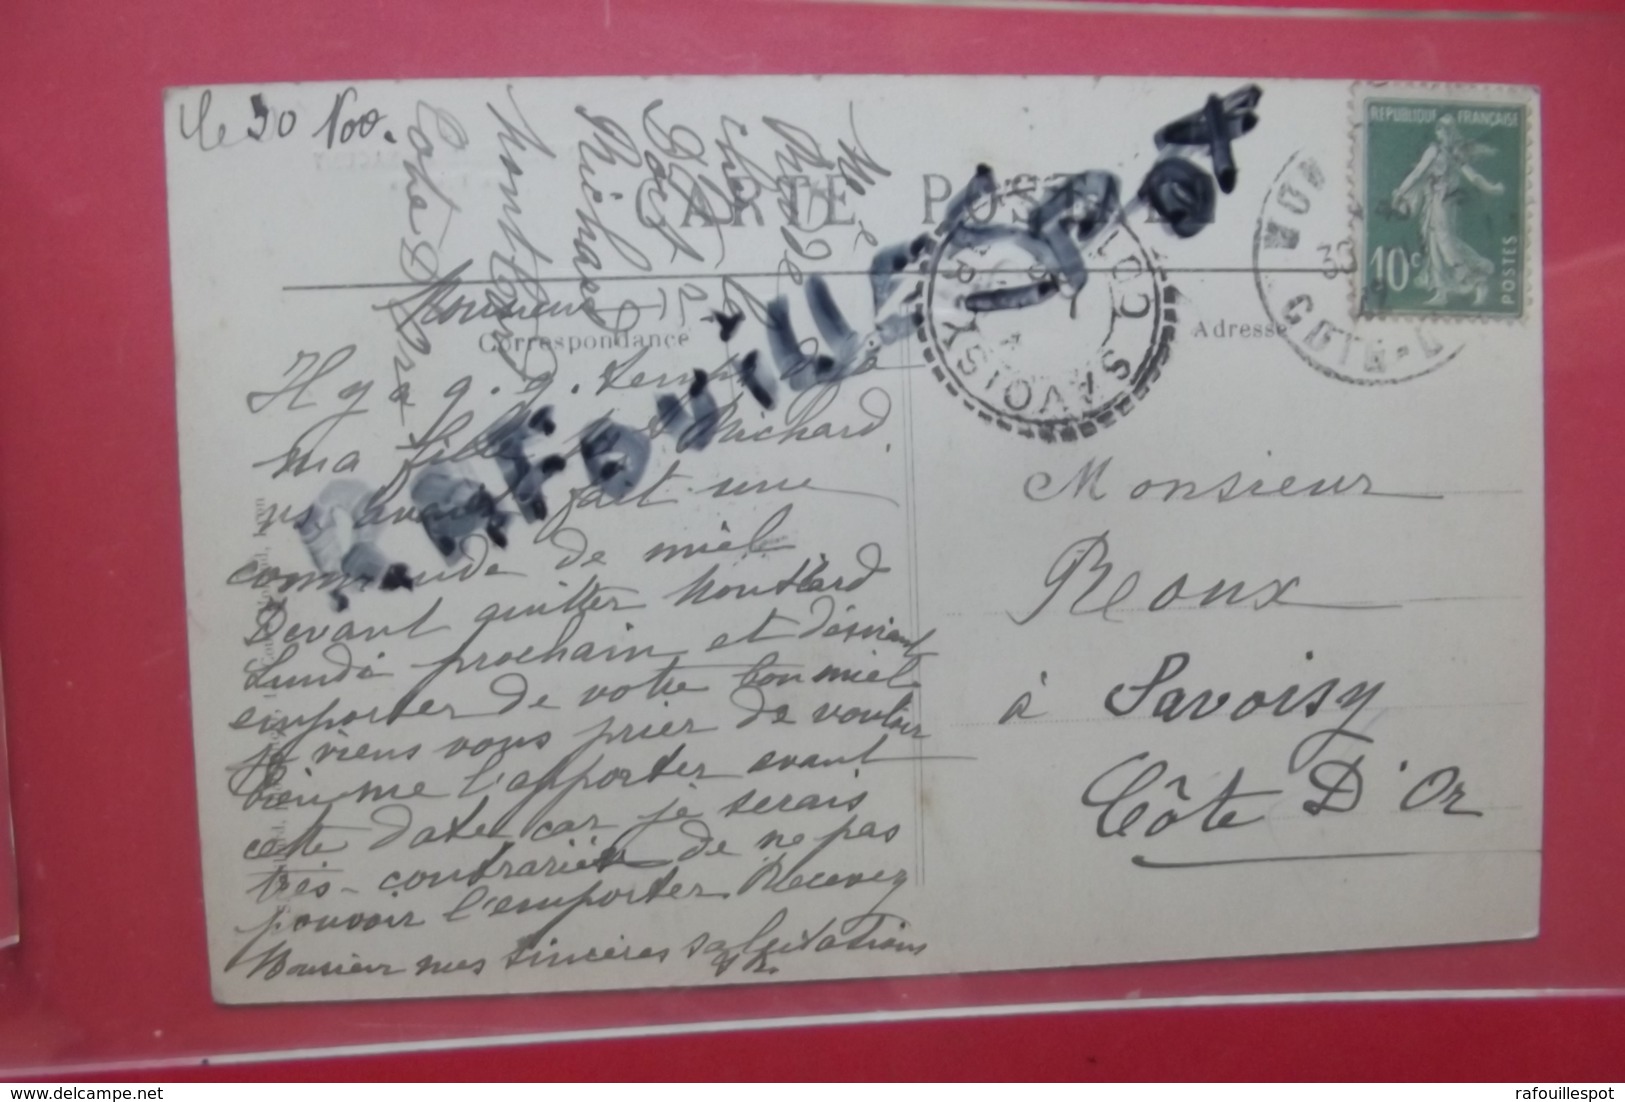 le 30 Nov.
CARTE POSTALE
Correspondance
Adresse
RAFOUILLESPOT
REPUBLIQUE FRANÇAISE
10c
POSTES
CÔTE-D'OR
SAVOISY
Monsieur
Il y a q. q. temps
ma fille Richard
ns avait fait une
commande de miel
Devant quitter Montbard
Lundi prochain et désirant
emporter de votre bon miel
je viens vous prier de vouloir
bien me l'apporter avant
cette date car je serais
très contrariée de ne pas
pouvoir l'emporter Recevez
Monsieur mes sincères salutations
Richard
Montbard
Côte d'Or
Monsieur
Roux
à Savoisy
Côte D'Or
rafouillespot
www.delcampe.net